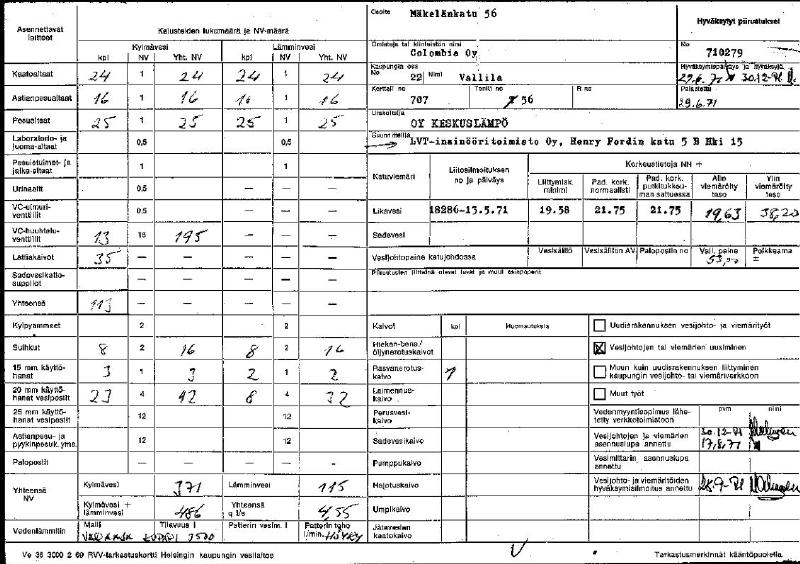 Osoite Mäkelänkatu 56
Asennettavat laitteet
Kalusteiden lukumäärä ja NV-määrä
Kylmävesi Lämminvesi
kpl NV Yht. NV kpl NV Yht. NV
Kaatoaltaat 24 1 24 24 1 24
Astianpesualtaat 16 1 16 16 1 16
Pesualtaat 25 1 25 25 1 25
Laboratorio- ja juoma-altaat 0,5 0,5
Pesuistuimet- ja jalka-altaat 1 1
Urinaalit 0,5 — — —
VC-sitruuri-venttiilit 0,5 — — —
VC-huuhtelu-venttiilit 13 15 195 — — —
Lattiakaivot 35 — — — — —
Sadevesikatto-suppilot — — — — —
Yhteensä 113 — — — — —
Kylpyammeet 2 2
Suihkut 8 2 16 8 2 16
15 mm käyttö-hanat 3 1 3 2 1 2
20 mm käyttö-hanat vesipostit 23 4 92 8 4 32
25 mm käyttö-hanat vesipostit 12 12
Astianpesu- ja pyykinpesuk. yms. 12 12
Palopostit — — — — —
Yhteensä NV
Kylmävesi 371 Lämminvesi 115
Kylmävesi + lämminvesi 486 Yhteensä q l/s 4,55
Vedenlämmitin Malli Tilavuus l 3500 Patterin vesim. l Patterin teho l/min.
Omistaja tai kiinteistön nimi
Colombia Oy
Kaupungin osa
No 22 Nimi Vallila
Kortteli no 707 Tontti no 56 R no
Urakoitsija
OY KESKUSLÄMPÖ
Suunnittelija
LVT-insinööritoimisto Oy, Henry Fordin katu 5 B Hki 15
Hyväksytyt piirustukset
No 710279
Hyväksymispäiväys ja hyväksyjä
30.12-81
Palautettu
29.6.71
Katuviemäri Liitosilmoituksen no ja päiväys Korkeustietoja NN +
Liittymisk. minimi Pad. kork. normaalisti Pad. kork. putkitukkeu-man sattuessa Alin viemäröity taso Ylin viemäröity taso
Likavesi 18286-13.5.71 19.58 21.75 21.75 19,63 38,20
Sadevesi
Vesijohtopaine katujohdossa Vesisäiliö Vesisäiliön AV Palopostin no Vsij. paine Poikkeama ±
Piirustusten liitteinä olevat luvat ja muut asiapaperit
Kaivot kpl Huomautuksia
Hiekan-bens./öljynerotuskaivot
Rasvanerotus-kaivo 1
Laimennus-kaivo
Perusvesi-kaivo
Sadevesikaivo
Pumppukaivo
Hajotuskaivo
Umpikaivo
Jätevesien kaatokaivo
Uudisrakennuksen vesijohto- ja viemärityöt
Vesijohtojen tai viemärien uusiminen
Muun kuin uudisrakennuksen liittyminen kaupungin vesijohto- tai viemäriverkkoon
Muut työt
pvm nimi
Vedenmyyntisopimus lähe-tetty verkkotoimistoon
Vesijohtojen ja viemärien asennuslupa annettu 30.12-81 17.8.71
Vesimittarin asennuslupa annettu
Vesijohto- ja viemäritöiden hyväksymisilmoitus annettu 28.9-81
Ve 35 3000 2 69 RVV-tarkastuskortti Helsingin kaupungin vesilaitos
Tarkastusmerkinnät kääntöpuolella.